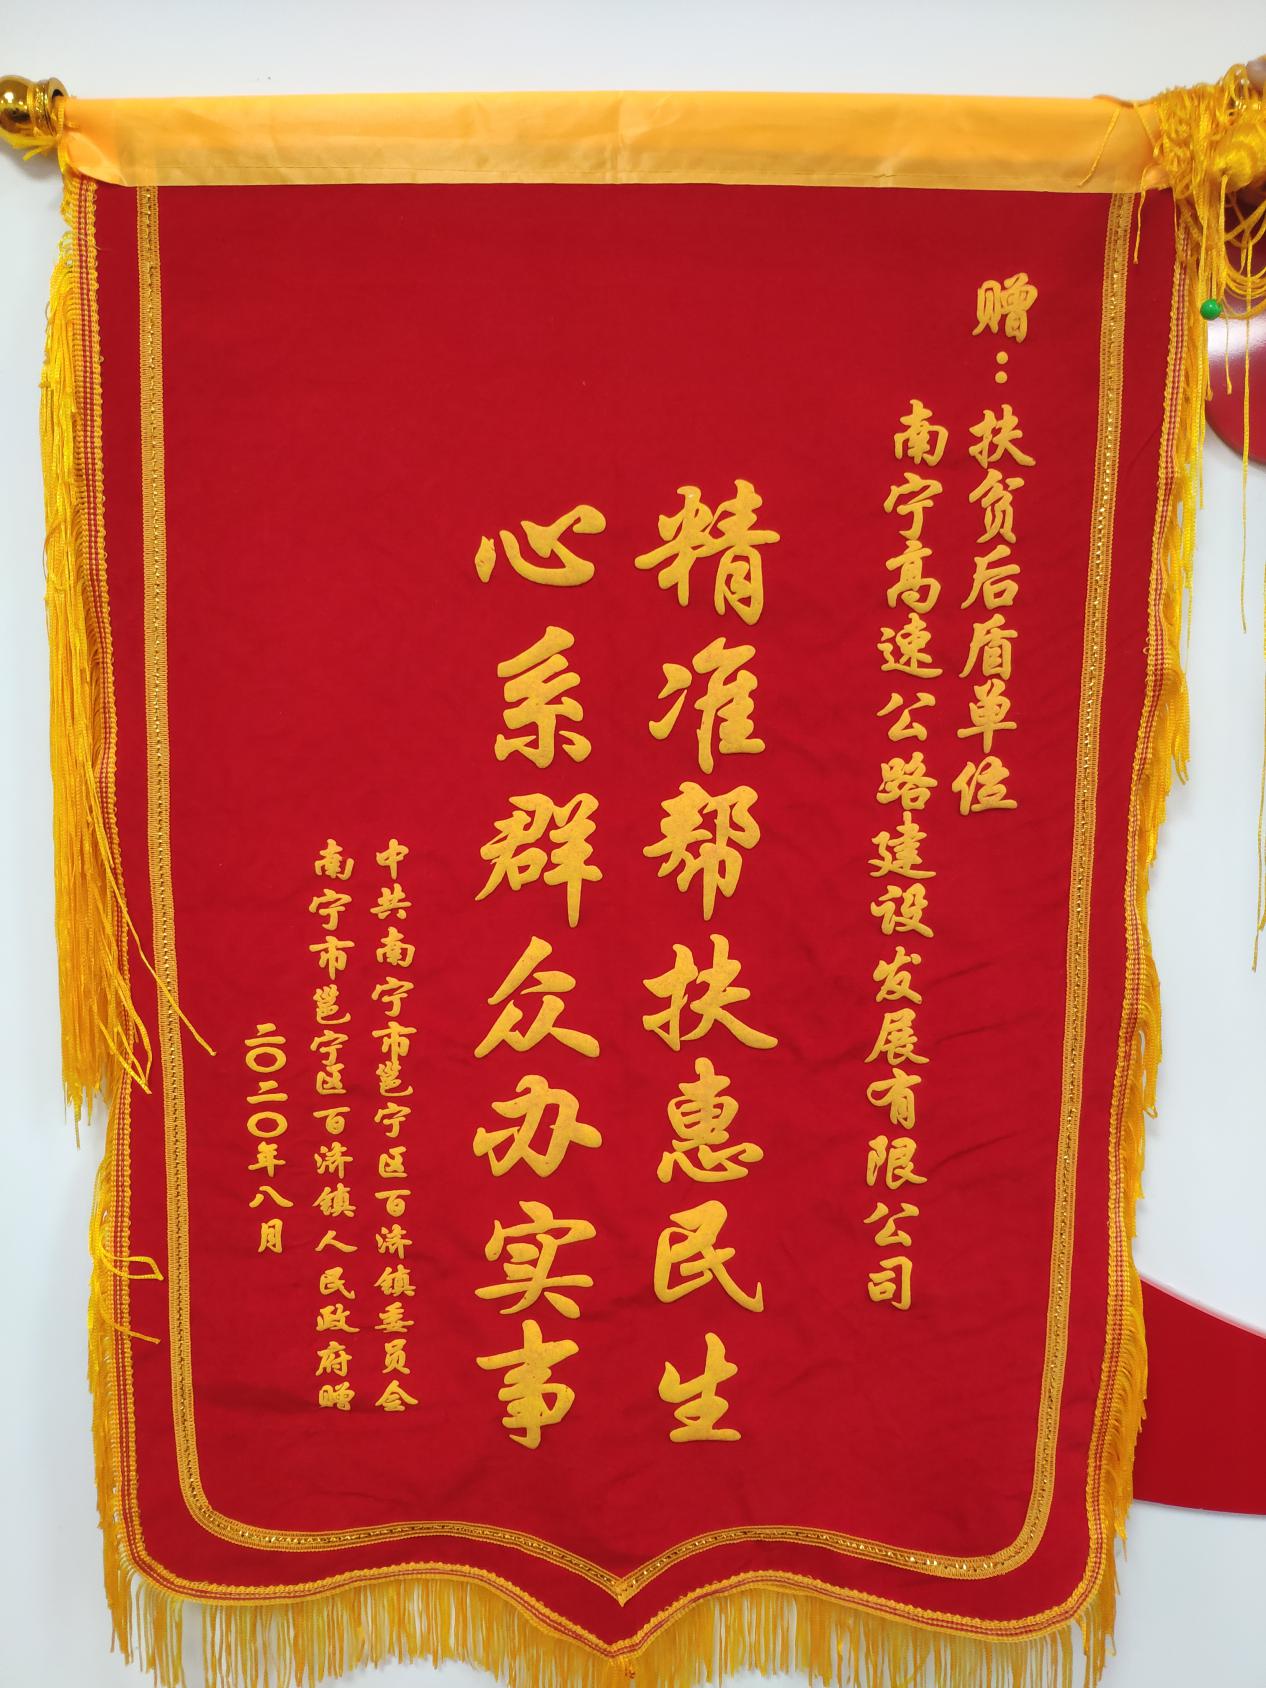 赠：扶贫后盾单位
南宁高速公路建设发展有限公司
精准帮扶惠民生
心系群众办实事
中共南宁市邕宁区百济镇委员会
南宁市邕宁区百济镇人民政府赠
二〇二〇年八月